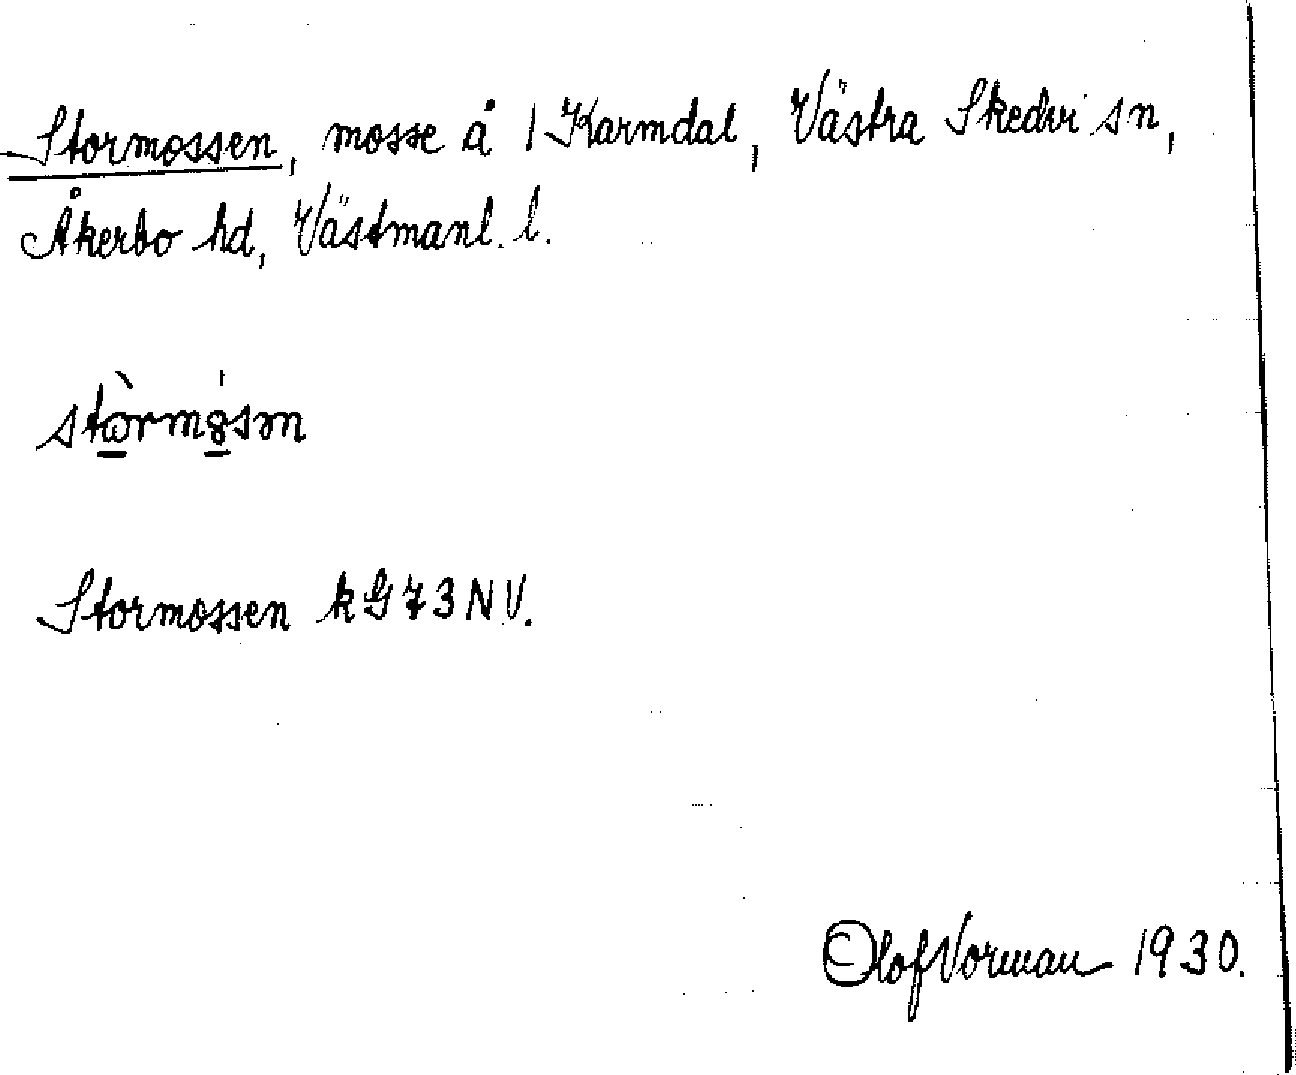 Stormossen, mosse å 1 Karmdal, Västra Skedvi sn,
Åkerbo hd, Västmanl. l.
Stormossen k G 73 NV.
Olof Vorman 1930.